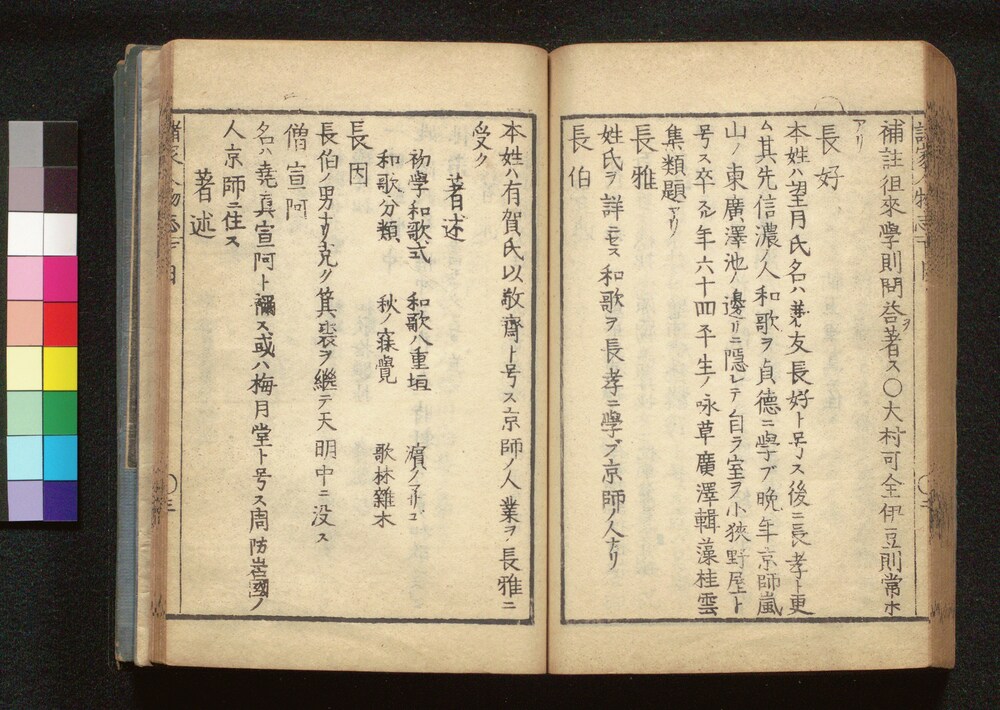 補註徂來學則問荅ヲ著ス〇大村可全伊豆則常ホ
アリ
長好
本姓ハ望月氏名ハ兼友長好ト号ス後ニ長孝ト更
ム其先信濃ノ人和歌ヲ貞德ニ學ブ晩年京師嵐
山ノ東廣澤池ノ邊リニ隠レテ自ラ室ヲ小狹野屋ト
号ス卒スル年六十四平生ノ咏草廣澤輯藻桂雲
集類題アリ
長雅
姓氏ヲ詳ニセス和歌ヲ長孝ニ學ブ京師ノ人ナリ
長伯
本姓ハ有賀氏以敬齋ト号ス京師ノ人業ヲ長雅ニ
受ク
著述
初學和歌式 和歌八重垣 濱ノマサゴ
和歌分類 秋ノ寐覺 歌林雜木
長因
長伯ノ男ナリ克ク箕裘ヲ繼テ天明中ニ没ス
僧宣阿
名ハ堯真宣阿ト稱ス或ハ梅月堂ト号ス周防岩國ノ
人京師ニ住ス
著述
諸家人物志下